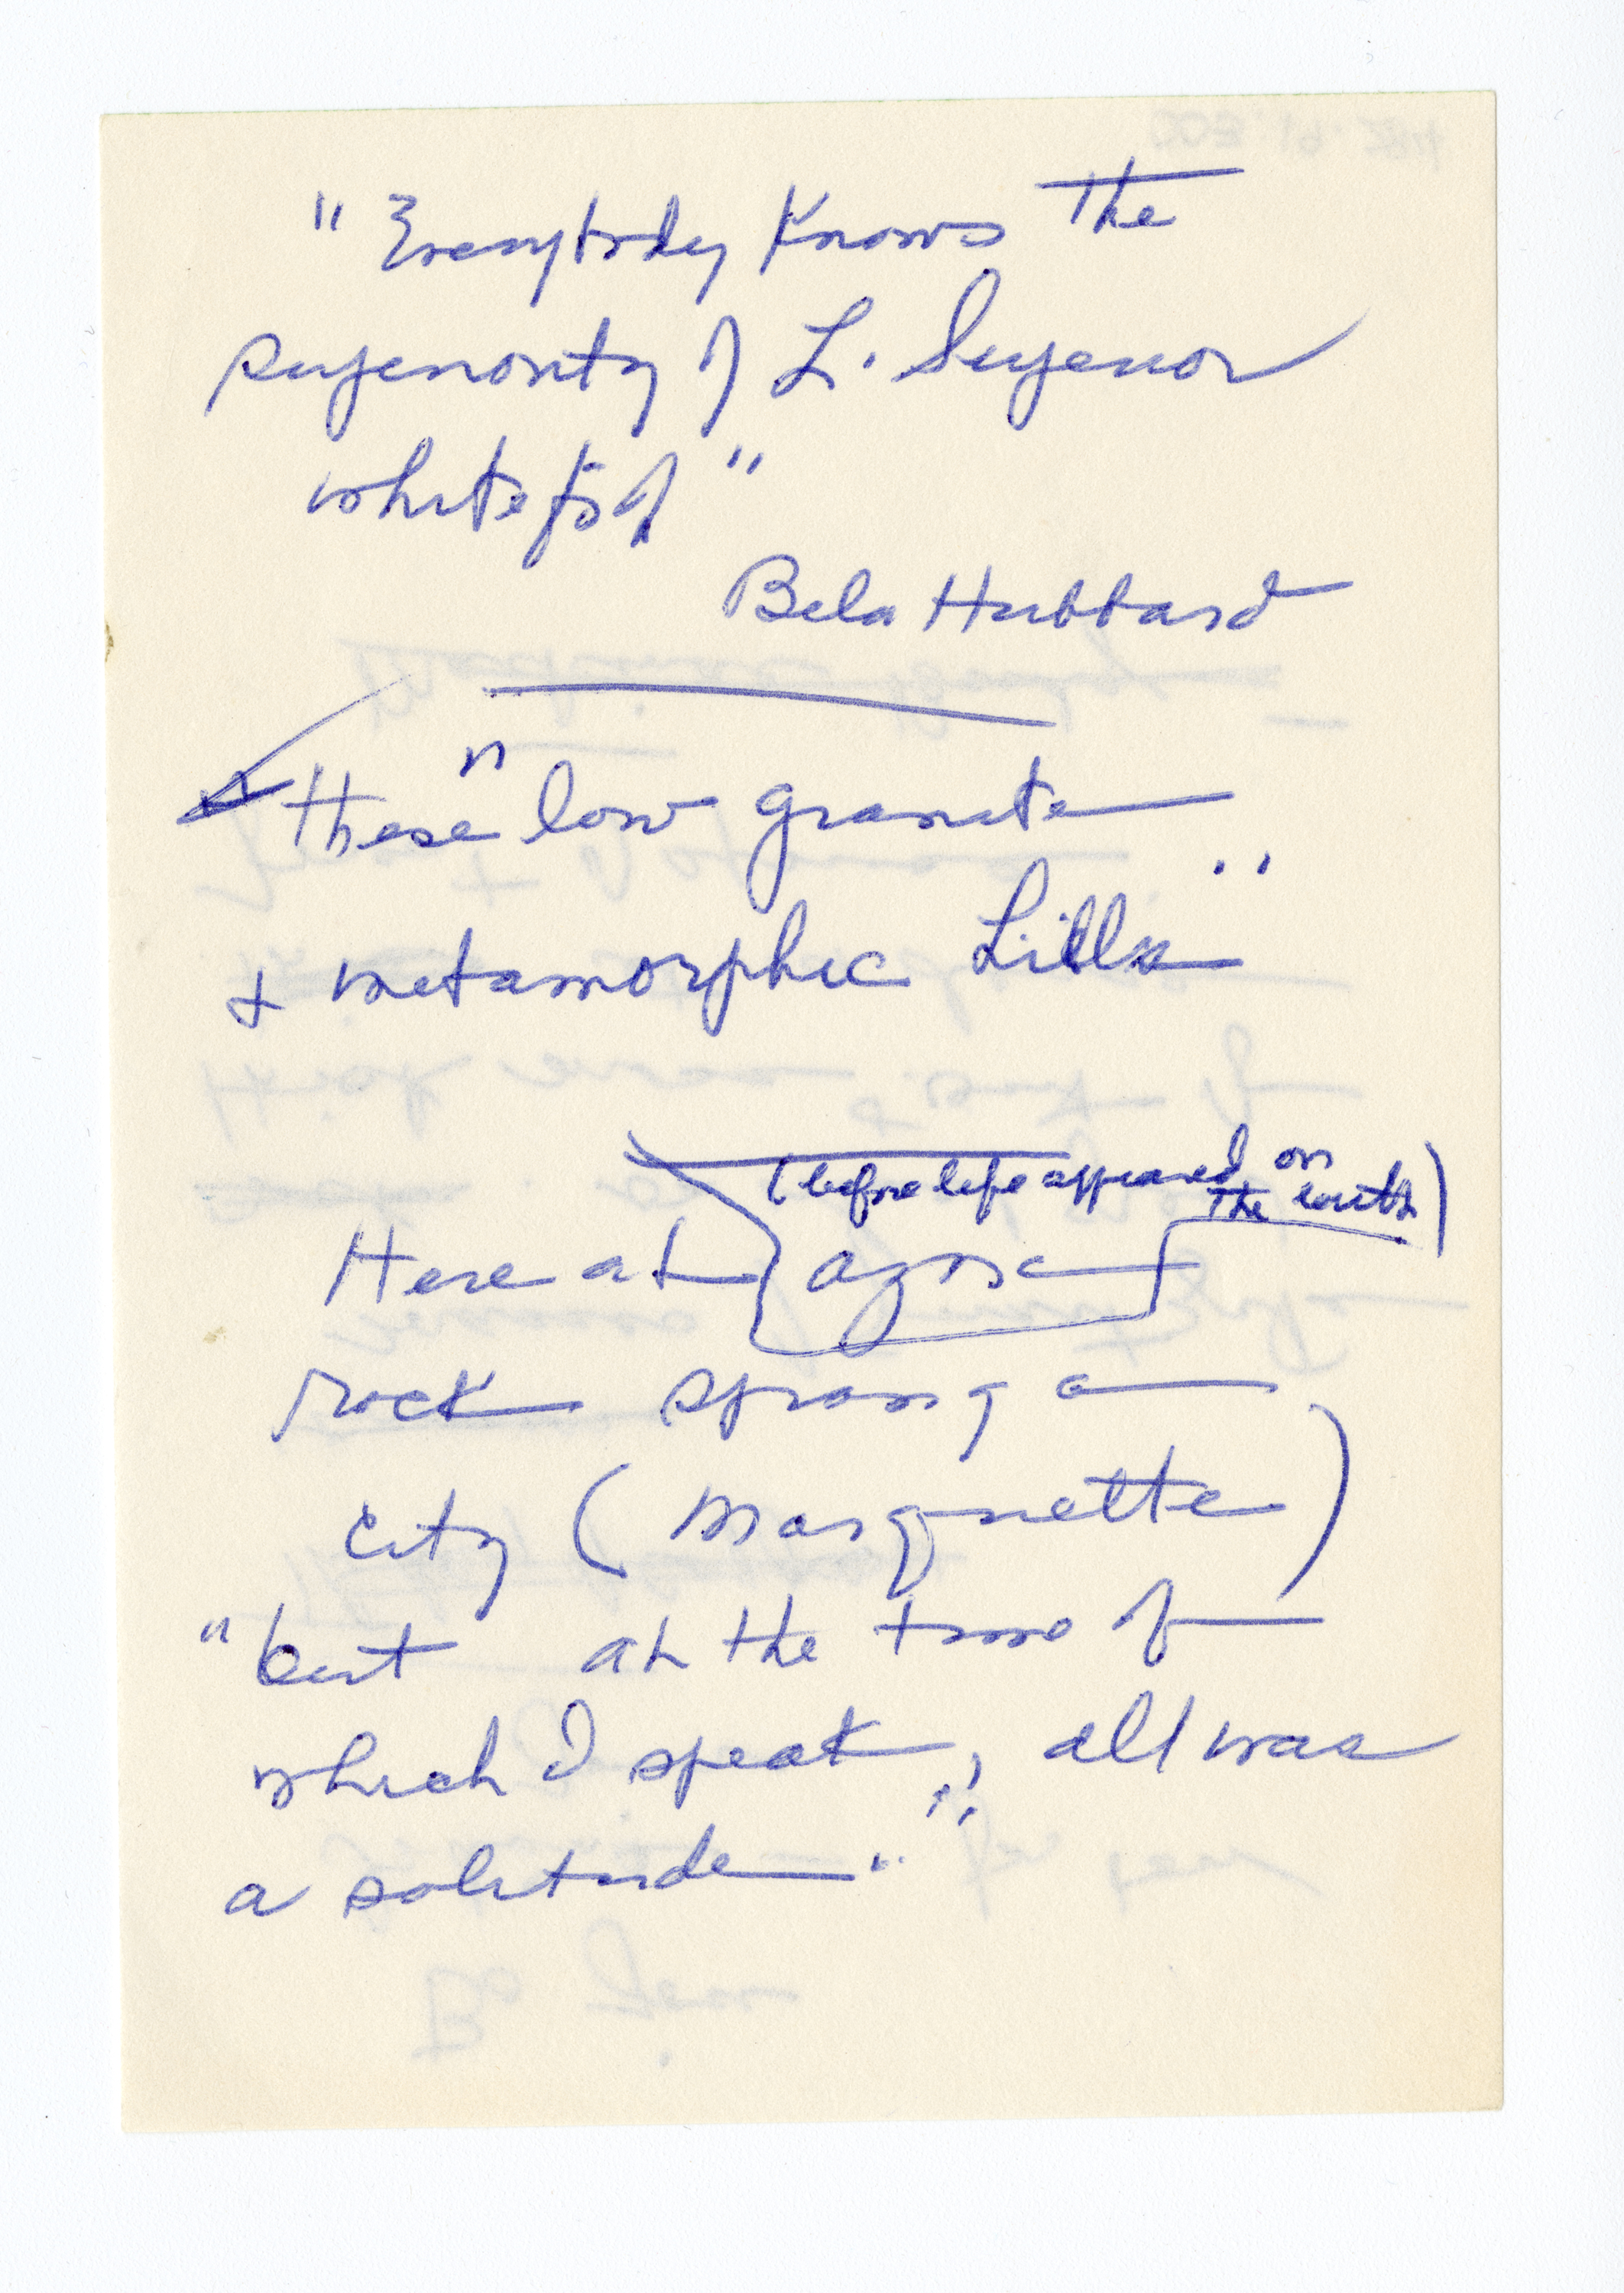 "Everybody Knows The
superiority of L. Superior
whitefish"
Bela Hubbard
These " low granite
& metamorphic hills"
(before life appeared on
the earth)
Here at azoic
rock sprang a
City (Marquette)
"but at the time of
which I speak," all was
a solitude"